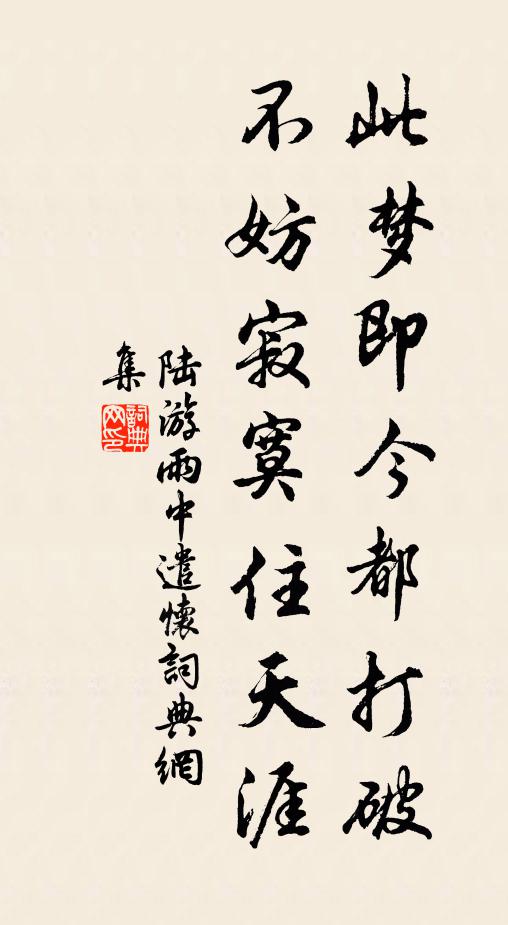 此梦即今都打破
不妨寂寞住天涯
陆游雨中遣懷詞典網
集
詞典网印